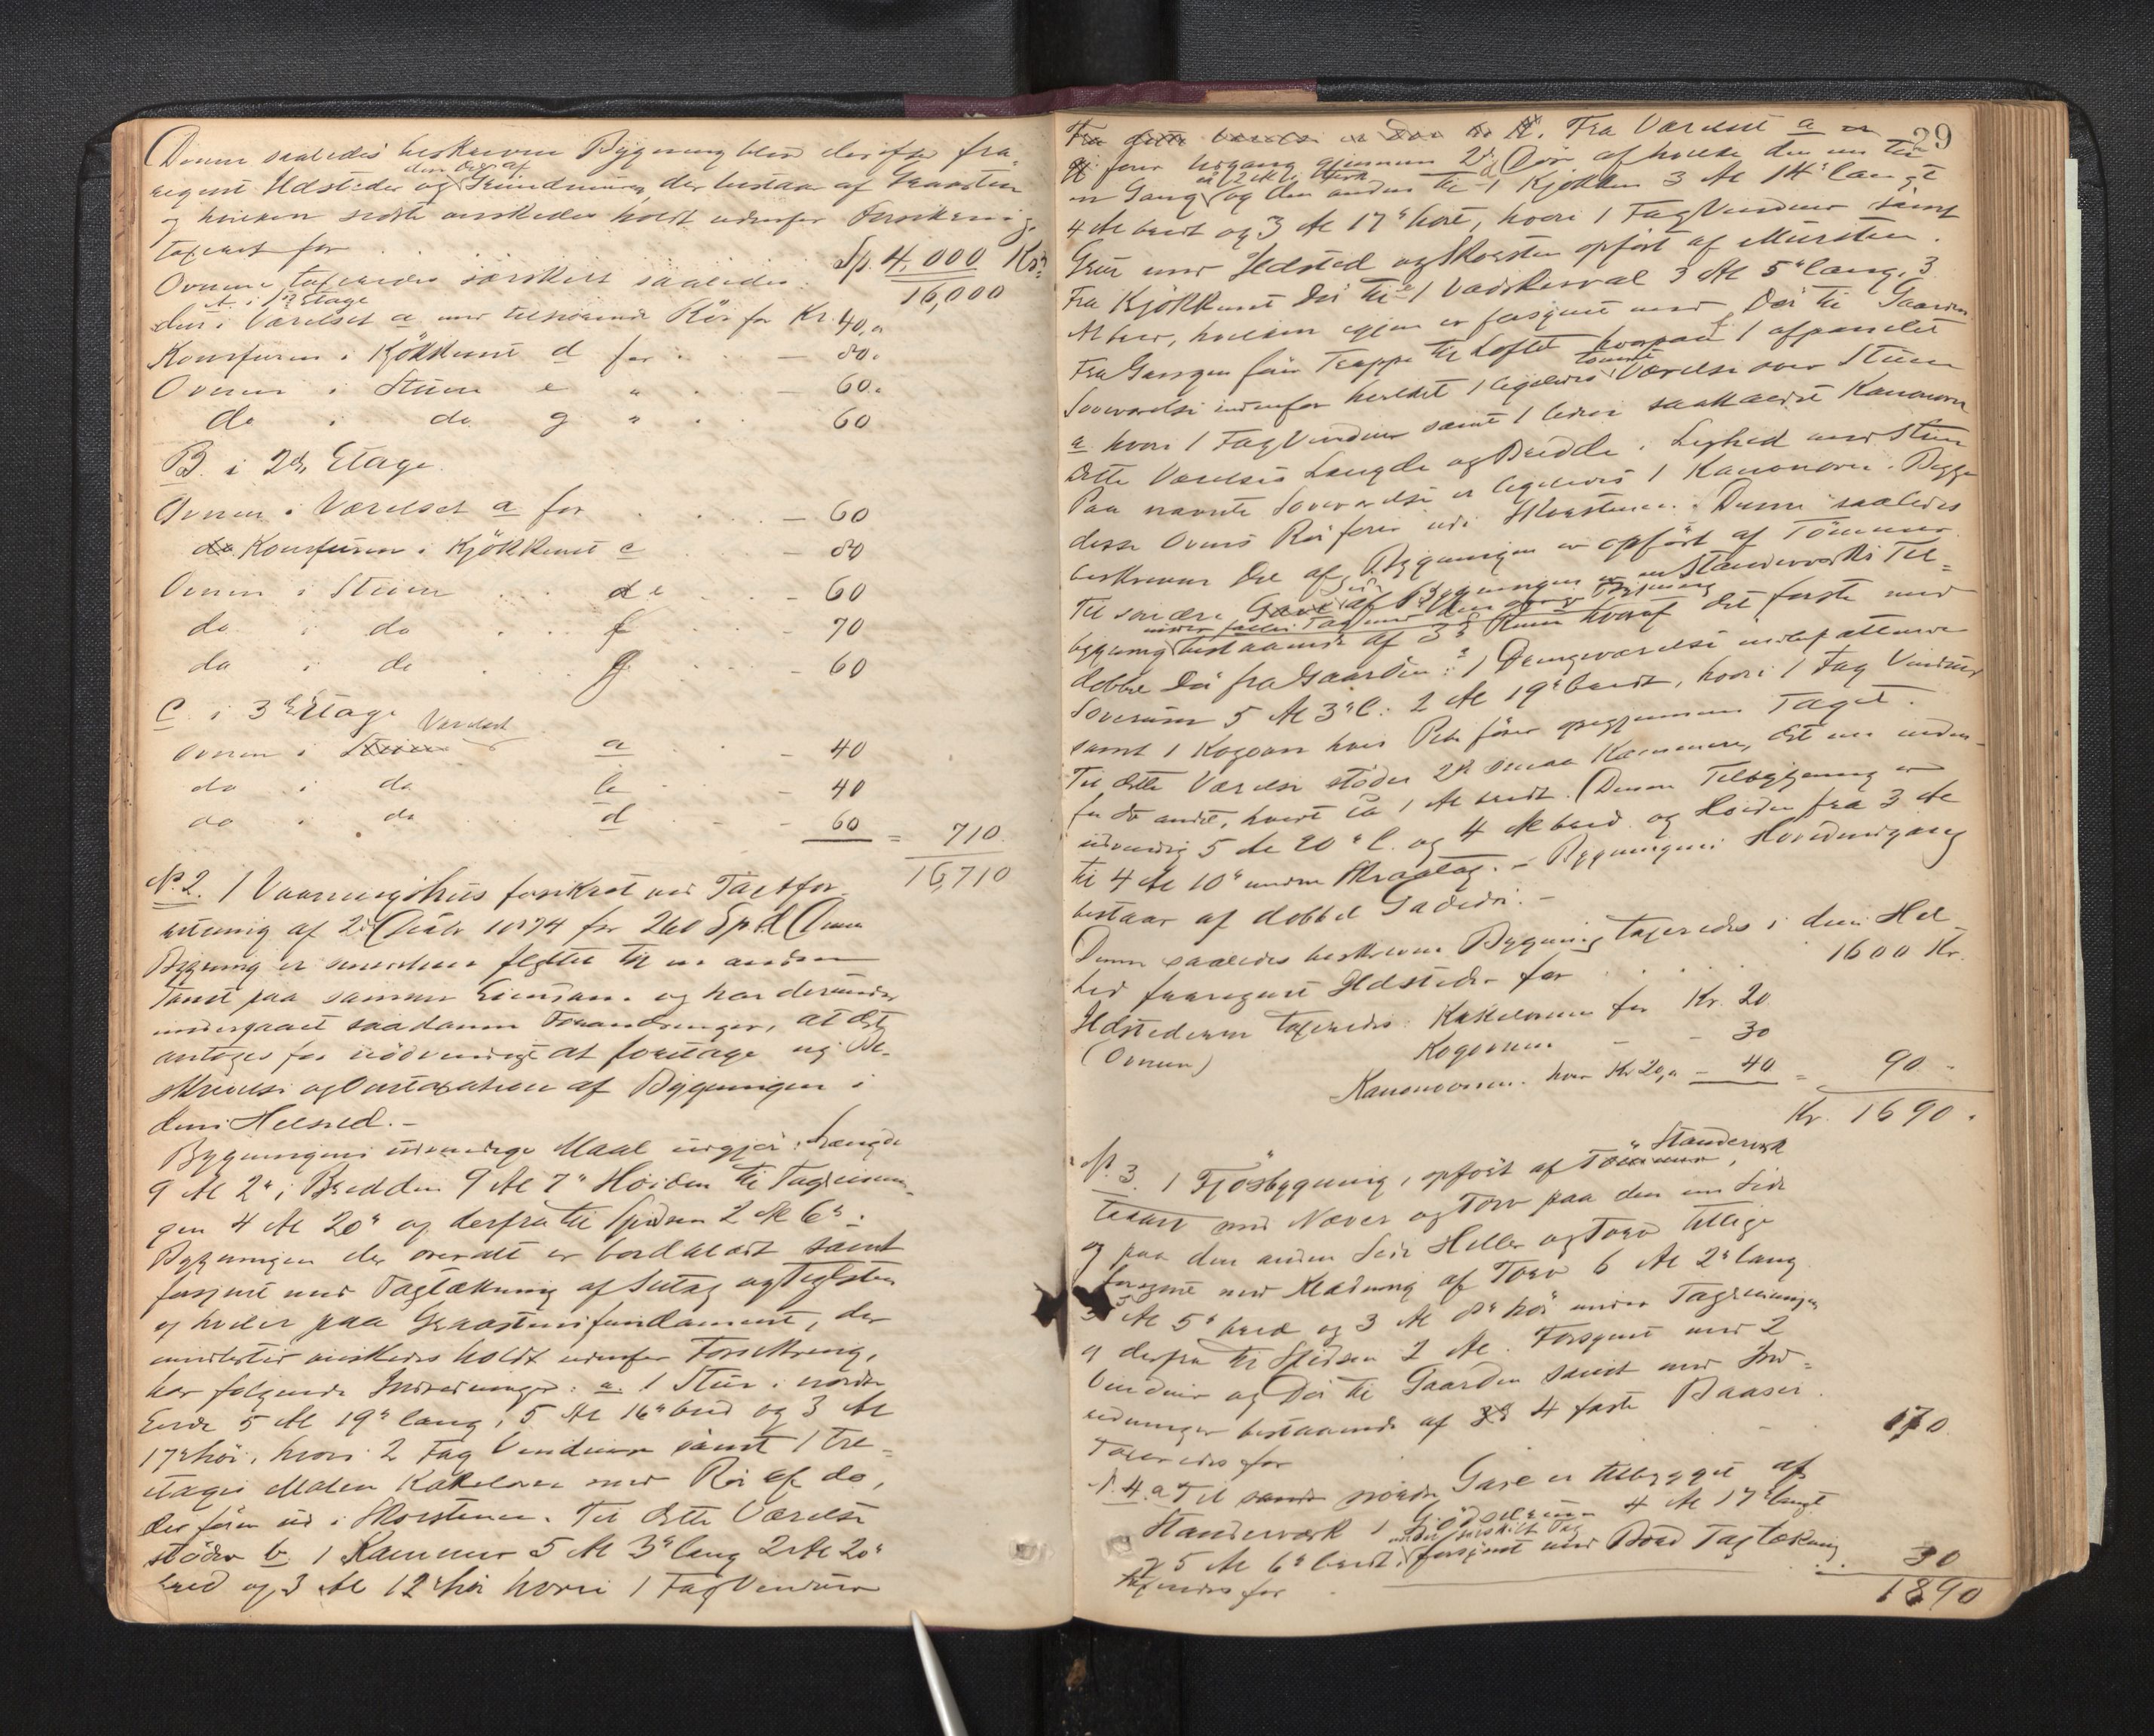 Denne saaledes beskrevne Bygning blev derefter fra-
regnet Ildsteder og den Del af Grundmuren, der bestaar af Graasten
og hvilken sidste ønskedes holdt udenfor Forsikring,
taxeret for . . . Sp. 4,000 Kr.
16,000
Ovnene taxeredes særskilt saaledes:
A. i 1ste Etage
den i Værelset a med tilhørende Rør for Kr. 40,"
Komfuren i Kjøkkenet d for . . — 80.
Ovnen i Stuen e " . . — 60.
do i do g " . . 60
B. i 2den Etage.
Ovnen i Værelset a for . . . — 60
Komfuren i Kjøkkenet c . . — 80
Ovnen i Stuen . . e . . — 60
do i do . . f . . — 70
do i do . . g . . — 60
C. i 3die Etage
Ovnen i Værelset a . . — 40
do i do b . . — 40
do i do d . . — 60 = 710.
16,710
No. 2. 1 Vaaningshus forsikret ved Taxtfor-
retning af 2 1874 for 260 Spd. Denne
Bygning er senere flyttet til en anden
Tomt paa samme Eiendom og har derunder
undergaaet saadanne Forandringer, at det
antoges for nødvendigt at foretage ny Be-
skrivelse og Omtaxation af Bygningen i
dens Helhed. —
Bygningens udvendige Maal udgjør i Længde
9 Al 2", i Bredden 9 Al 7" Høiden til Tagrenin-
gen 4 Al 20" og derfra til Spidsen 2 Al 6".
Bygningen der overalt er bordklædt samt
forsynet med Tagtækning af Sutag og Teglsten
og hviler paa Graastensfundament, der
imidlertid ønskedes holdt udenfor Forsikring,
har følgende Indredninger: a. 1 Stue i nordre
Ende 5 Al 19" lang, 5 Al 16" bred og 3 Al
17" høi, hvori 2 Fag Vinduer samt 1 tre-
etages Kakelovn med Rør af do,
der fører ud i Skorstenen. Til dette Værelse
støder b. 1 Kammer 5 Al 3" lang 2 Al 20"
bred og 3 Al 12" høi hvori 1 Fag Vinduer
29
Fra dette Værelse er Dør til K. Fra Værelset a er
fører Udgang gjennem 2de Døre af hvilke den ene til
en Gang og den anden til 1 Kjøkken 3 Al 14" langt
4 Al bredt og 3 Al 17" høit, hvori 1 Fag Vinduer samt
Grue med Ildsted og Skorsten opført af Mursten.
Fra Kjøkkenet Dør til 1 Vadskersval 3 Al 5" lang, 3
Al bred, hvilken igjen er forsynet med Dør til Gaarden
Fra Gangen fører Trappe til Loftet hvorpaa 1 afpanelet
Soveværelse indenfor hvilket 1 ligeledes tømret Værelse over Stuen
a hvori 1 Fag Vinduer samt 1 liden saakaldet Kanonovn
dette Værelses Længde og Bredde i Lighed med Stuen
Paa nævnte Soveværelse er ligeledes 1 Kanonovn. Begge
disse Ovnes Rør fører ud i Skorstenen. Denne saaledes
beskrevne Del af Bygningen er opført af Tømmer.
Til søndre Side af Bygningen er en Standerværks Til-
bygning bestaaende af 3de Rum hvoraf det første med
dobbel Dør fra Gaarden: 1 Drengeværelse
Soverum 5 Al 3" l: 2 Al 19" bredt, hvori 1 Fag Vinduer
samt 1 Kogeovn hvis Rør fører op gjennem Taget.
Til dette Værelse støder 2de smaa Kammere, det ene inden-
for det andet, hvert ca 1 Al bredt. (Denne Tilbygning er
udvendig 5 Al 20" l. og 4 Al bred og Høiden fra 3 Al
til 4 Al 10" under Skraatag. — Bygningens Hovedindgang
bestaar af dobbel Gadedør. —
Denne saaledes beskrevne Bygning taxeredes i dens Hel-
hed fraregnet Ildsteder for . . . 1600 Kr.
Ildstederne taxeredes: Kakelovnen for Kr. 20
(Ovnen) Kogeovnen — — 30
Kanonovnene hver Kr 20," — 40 = 90. "
Kr. 1690.
No. 3. 1 Fjøsbygning, opført af Tømmer, Standerværk
tækket med Næver og Torv paa den ene Side
og paa den anden Side Heller og Torv tillige
forsynet med Klædning af Torv 6 Al 2" lang
5 Al 5" bred og 3 Al 8" høi under Tagreningen
og derfra til Spidsen 2 Al. Forsynet med 2
Vinduer og Dør til Gaarden samt med Ind-
redninger bestaaende af 4 faste Baaser.
Taxeredes for — 170.
No. 4. a Til nordre Gavl er tilbygget af
Standerværk 1 Gjødselrum 4 Al 17" langt
og 5 Al 6" bredt, forsynet med Bord Tagtækning
taxeredes for . . . 30
1890